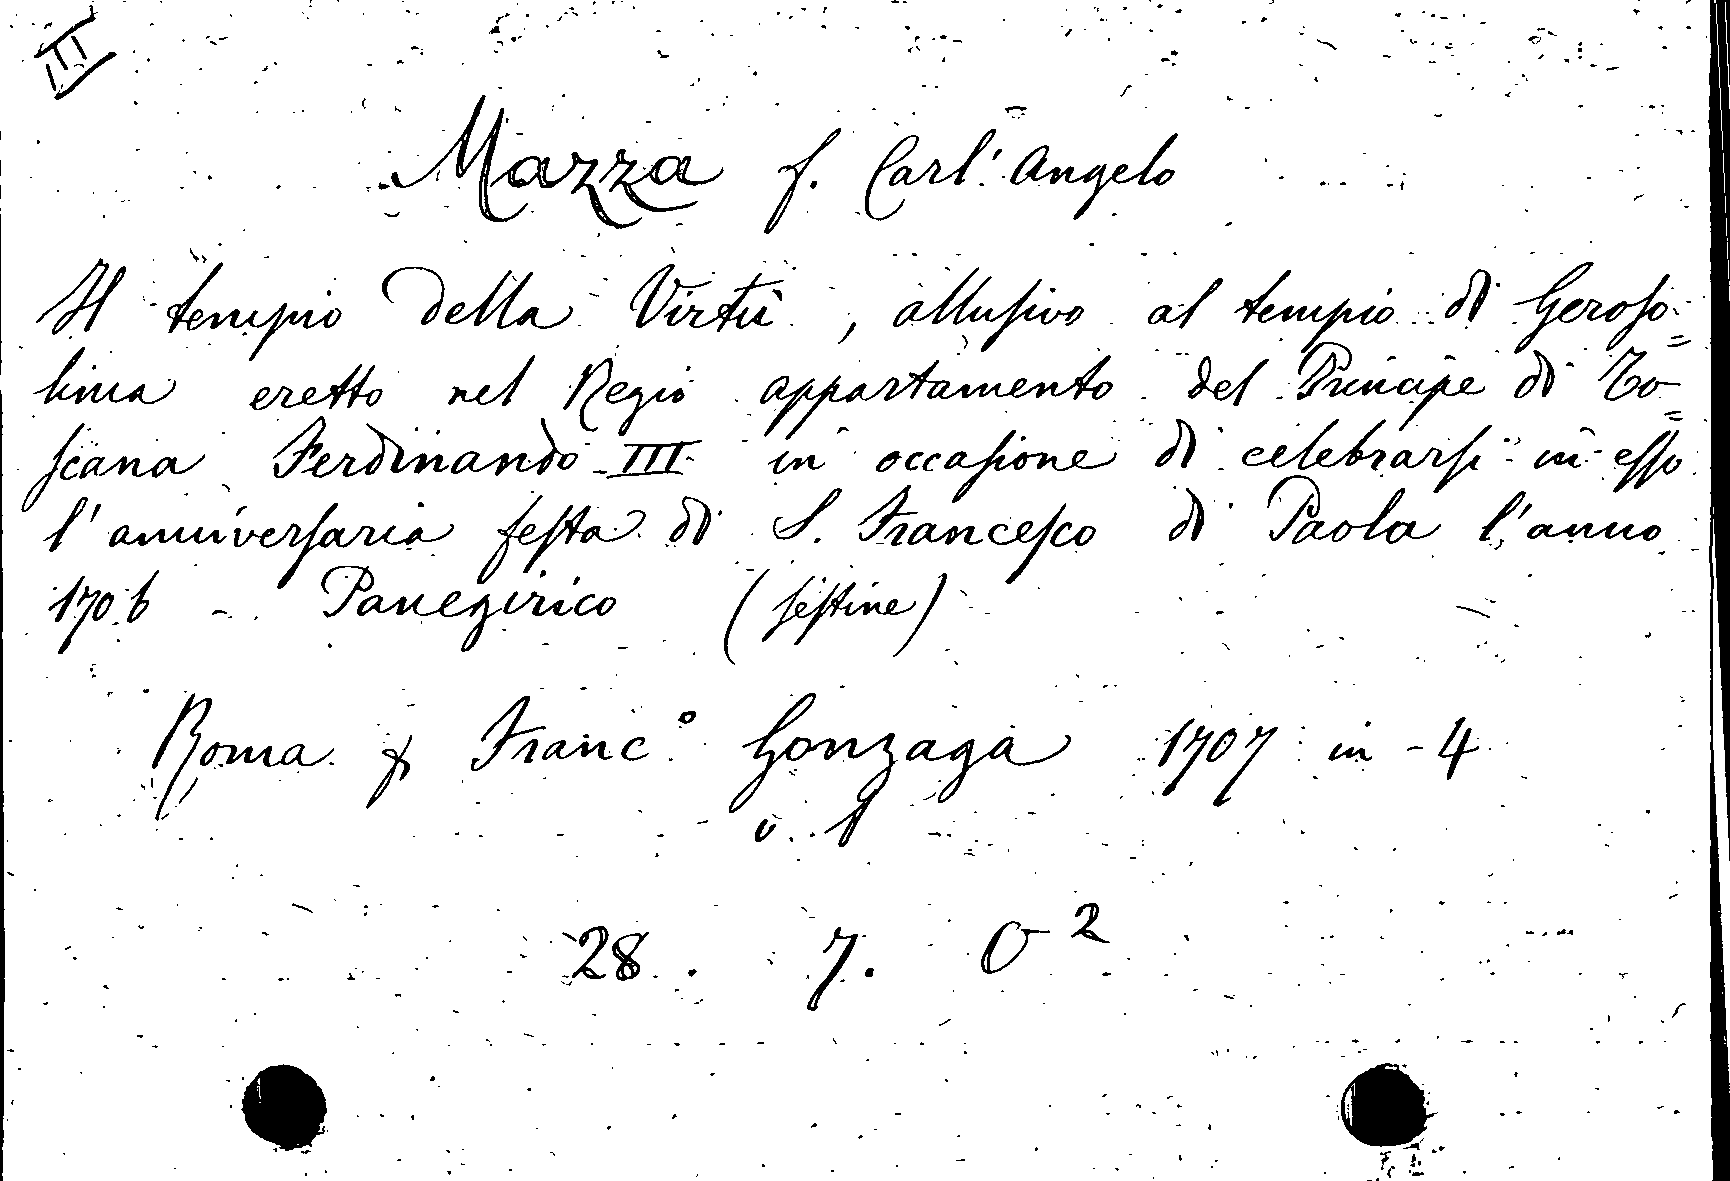 III
Mazza f. Carl' Angelo
Il tempio della Virtù, allusivo al tempio di Geroso=
lima eretto nel Regio appartamento del Principe di To=
scana Ferdinando III in occasione di celebrarsi in esso
l'anniversaria festa di S. Francesco di Paola l'anno
1706 - Panegirico (sestine)
Roma Franc° Gonzaga 1707 in-4
28. 7. O²